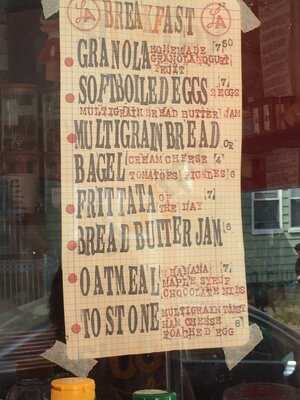 BREAKFAST
GRANOLA HOMEMADE 7⁵⁰
GRANOLA YOGURT
FRUIT
SOFTBOILED EGGS 7,
2 EGGS
MULTIGRAIN BREAD BUTTER JAM
MULTIGRAIN BREAD OR
BAGEL CREAM CHEESE 4
TOMATOES 6
FRITTATA OF 7
THE DAY
BREAD BUTTER JAM 6
OATMEAL BANANA 7,
MAPLE SYRUP
CHOCOLATE NIBS
TOSTONE MULTIGRAIN
HAM CHEESE 8
POACHED EGG